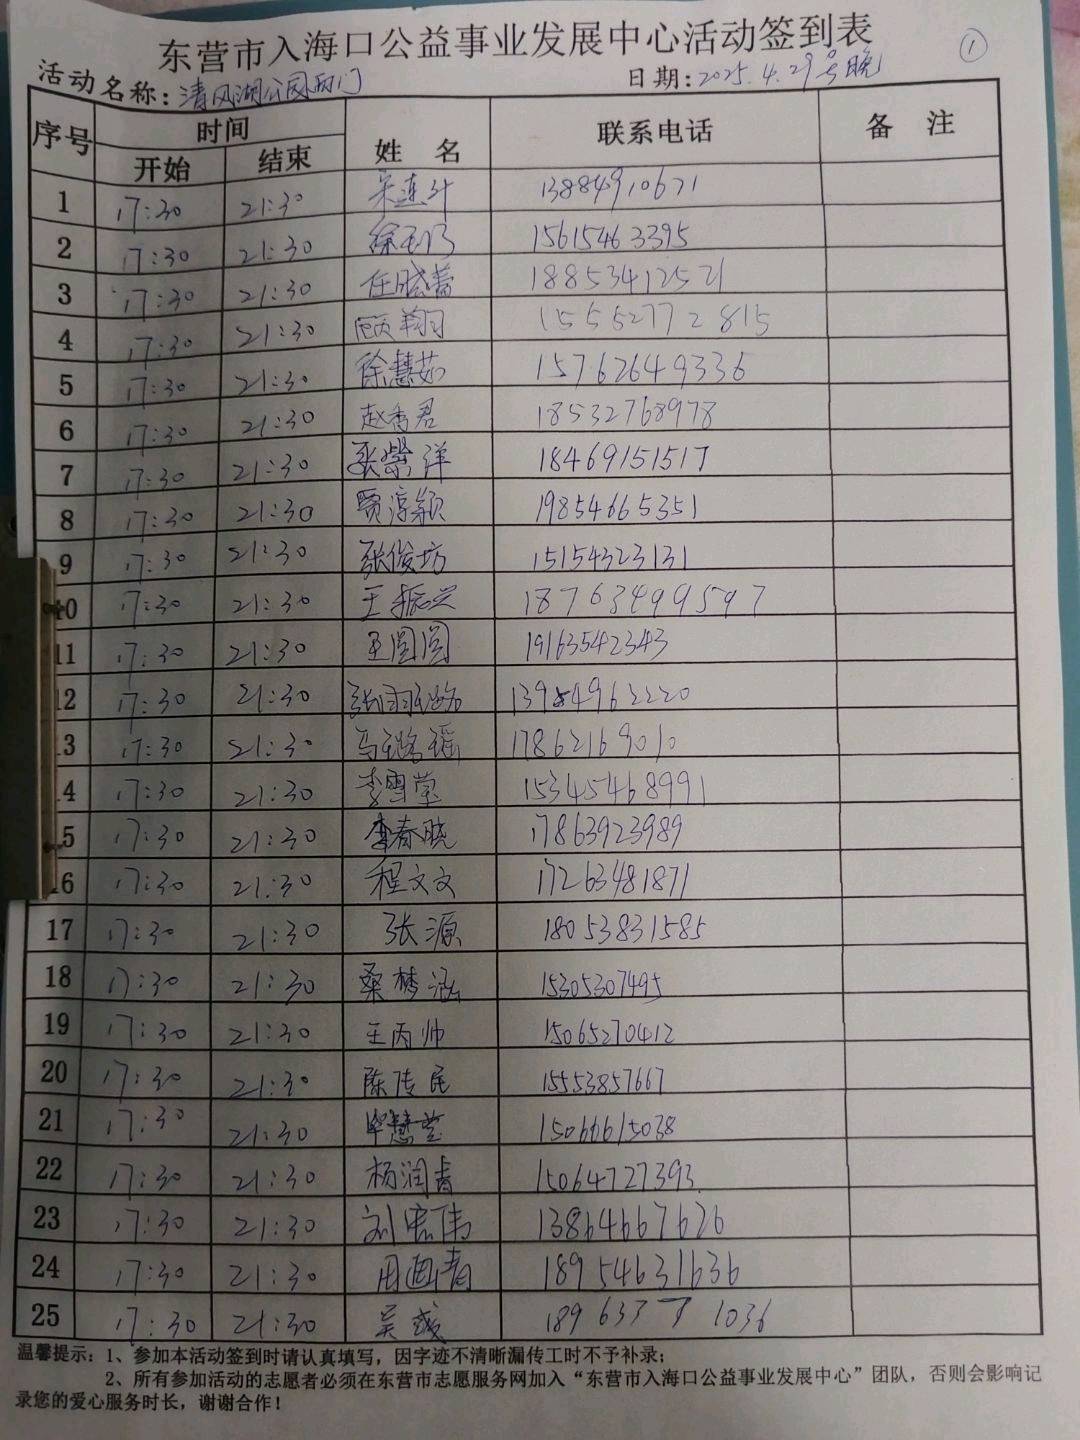 东营市入海口公益事业发展中心活动签到表
①
活动名称：清风湖公园西门 日期：2025.4.29号晚
序号 时间 姓名 联系电话 备注
开始 结束
1 17:30 21:30 吴连斗 13884910671
2 17:30 21:30 徐 15615463395
3 17:30 21:30 任晓蕾 18853412521
4 17:30 21:30 顾翔 15552772815
5 17:30 21:30 徐慧茹 15762649336
6 17:30 21:30 赵秀君 18532768978
7 17:30 21:30 张紫洋 18469151517
8 17:30 21:30 贾淳颖 19854665351
9 17:30 21:30 张俊坊 15154323131
10 17:30 21:30 王振兴 18763499597
11 17:30 21:30 王圆圆 19163542343
12 17:30 21:30 张羽璐 13954962220
13 17:30 21:30 马璐瑶 17862169010
14 17:30 21:30 李雪莹 15345468991
15 17:30 21:30 李春晓 17863923989
16 17:30 21:30 程文文 17263481871
17 17:30 21:30 张源 18053831585
18 17:30 21:30 桑梦涵 15305307495
19 17:30 21:30 王丙帅 15065270412
20 17:30 21:30 陈传民 15553857667
21 17:30 21:30 毕慧莹 15066615038
22 17:30 21:30 杨润青 15064727393
23 17:30 21:30 刘宏伟 13864667626
24 17:30 21:30 18954631636
25 17:30 21:30 吴 18963371036
温馨提示：1、参加本活动签到时请认真填写，因字迹不清晰漏传工时不予补录；
2、所有参加活动的志愿者必须在东营市志愿服务网加入“东营市入海口公益事业发展中心”团队，否则会影响记
录您的爱心服务时长，谢谢合作！